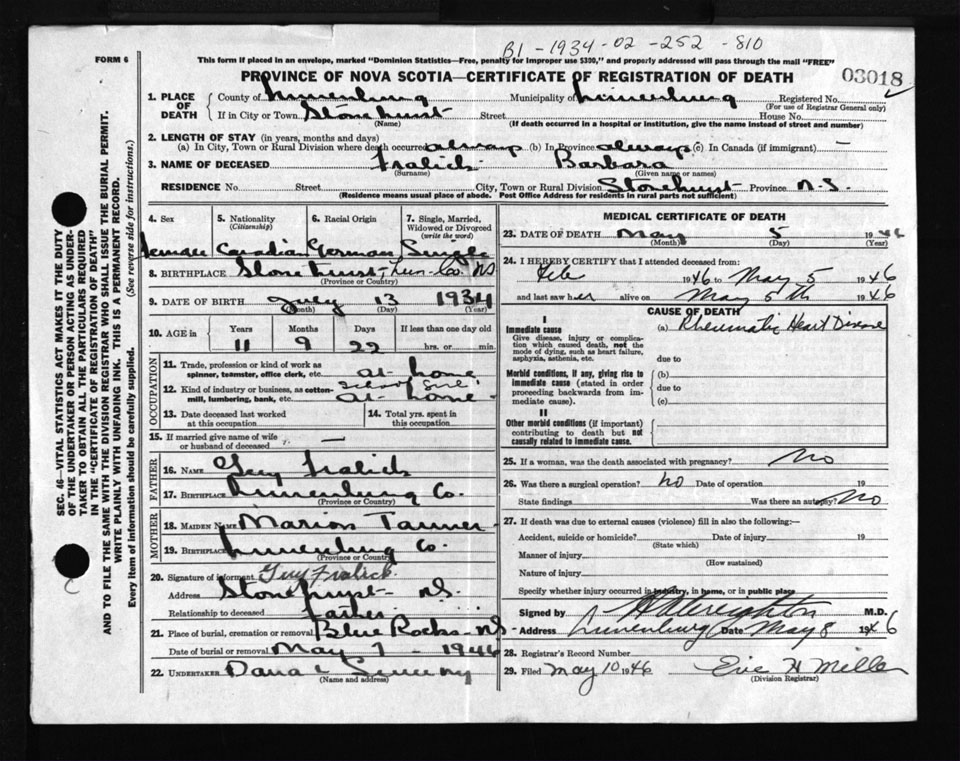 B1 - 1934 - 02 - 252 - 810
FORM 6
This form if placed in an envelope, marked "Dominion Statistics—Free, penalty for improper use $300," and properly addressed will pass through the mail "FREE"
PROVINCE OF NOVA SCOTIA—CERTIFICATE OF REGISTRATION OF DEATH
03018
SEC. 46—VITAL STATISTICS ACT MAKES IT THE DUTY
OF THE UNDERTAKER OR PERSON ACTING AS UNDER-
TAKER TO OBTAIN ALL THE PARTICULARS REQUIRED
IN THE "CERTIFICATE OF REGISTRATION OF DEATH"
AND TO FILE THE SAME WITH THE DIVISION REGISTRAR WHO SHALL ISSUE THE BURIAL PERMIT.
WRITE PLAINLY WITH UNFADING INK. THIS IS A PERMANENT RECORD.
Every item of information should be carefully supplied. (See reverse side for instructions.)
1. PLACE OF DEATH County of Lunenburg Municipality of Lunenburg Registered No.
(For use of Registrar General only)
If in City or Town Stonehurst Street House No.
(Name) (If death occurred in a hospital or institution, give the name instead of street and number)
2. LENGTH OF STAY (in years, months and days)
(a) In City, Town or Rural Division where death occurred always (b) In Province always (c) In Canada (if immigrant) —
3. NAME OF DECEASED Fralick Barbara
(Surname) (Given name or names)
RESIDENCE No. Street City, Town or Rural Division Stonehurst Province N.S.
(Residence means usual place of abode. Post Office Address for residents in rural parts not sufficient)
4. Sex 5. Nationality (Citizenship) 6. Racial Origin 7. Single, Married, Widowed or Divorced (write the word)
Female Canadian German Single
8. BIRTHPLACE Stonehurst Lun. Co. NS
(Province or Country)
9. DATE OF BIRTH July 13 1934
(Month) (Day) (Year)
10. AGE in Years Months Days If less than one day old
11 9 22 hrs. or min.
OCCUPATION
11. Trade, profession or kind of work as spinner, teamster, office clerk, etc. at home
School Girl
12. Kind of industry or business, as cotton-mill, lumbering, bank, etc. at home
13. Date deceased last worked at this occupation 14. Total yrs. spent in this occupation
15. If married give name of wife or husband of deceased —
FATHER
16. NAME Guy Fralick
17. BIRTHPLACE Lunenburg Co.
(Province or Country)
MOTHER
18. MAIDEN NAME Marion Tanner
19. BIRTHPLACE Lunenburg Co.
(Province or Country)
20. Signature of informant Guy Fralick.
Address Stonehurst N.S.
Relationship to deceased Father
21. Place of burial, cremation or removal Blue Rocks NS
Date of burial or removal May 7 - 1946
22. UNDERTAKER
(Name and address)
MEDICAL CERTIFICATE OF DEATH
23. DATE OF DEATH May 5 1946
(Month) (Day) (Year)
24. I HEREBY CERTIFY that I attended deceased from:
Feb 1946 to May 5 1946
and last saw her alive on May 5th 1946
CAUSE OF DEATH
I
Immediate cause (a) Rheumatic Heart Disease
Give disease, injury or complication which caused death, not the mode of dying, such as heart failure, asphyxia, asthenia, etc.
due to
Morbid conditions, if any, giving rise to immediate cause (stated in order proceeding backwards from immediate cause).
(b)
due to
(c)
II
Other morbid conditions (if important) contributing to death but not causally related to immediate cause.
25. If a woman, was the death associated with pregnancy? No
26. Was there a surgical operation? No Date of operation 19
State findings Was there an autopsy? No
27. If death was due to external causes (violence) fill in also the following:—
Accident, suicide or homicide? Date of injury 19
(State which)
Manner of injury
(How sustained)
Nature of injury
Specify whether injury occurred in industry, in home, or in public place
Signed by M.D.
Address Lunenburg Date May 8 1946
28. Registrar's Record Number
29. Filed May 10 1946
(Division Registrar)